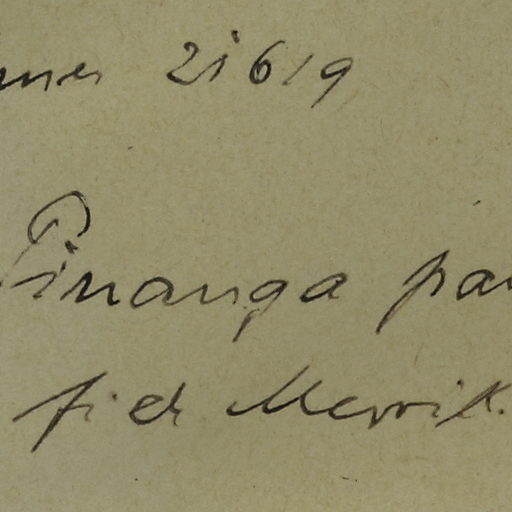 mer 21619
Pinanga pa
fide Merrill.